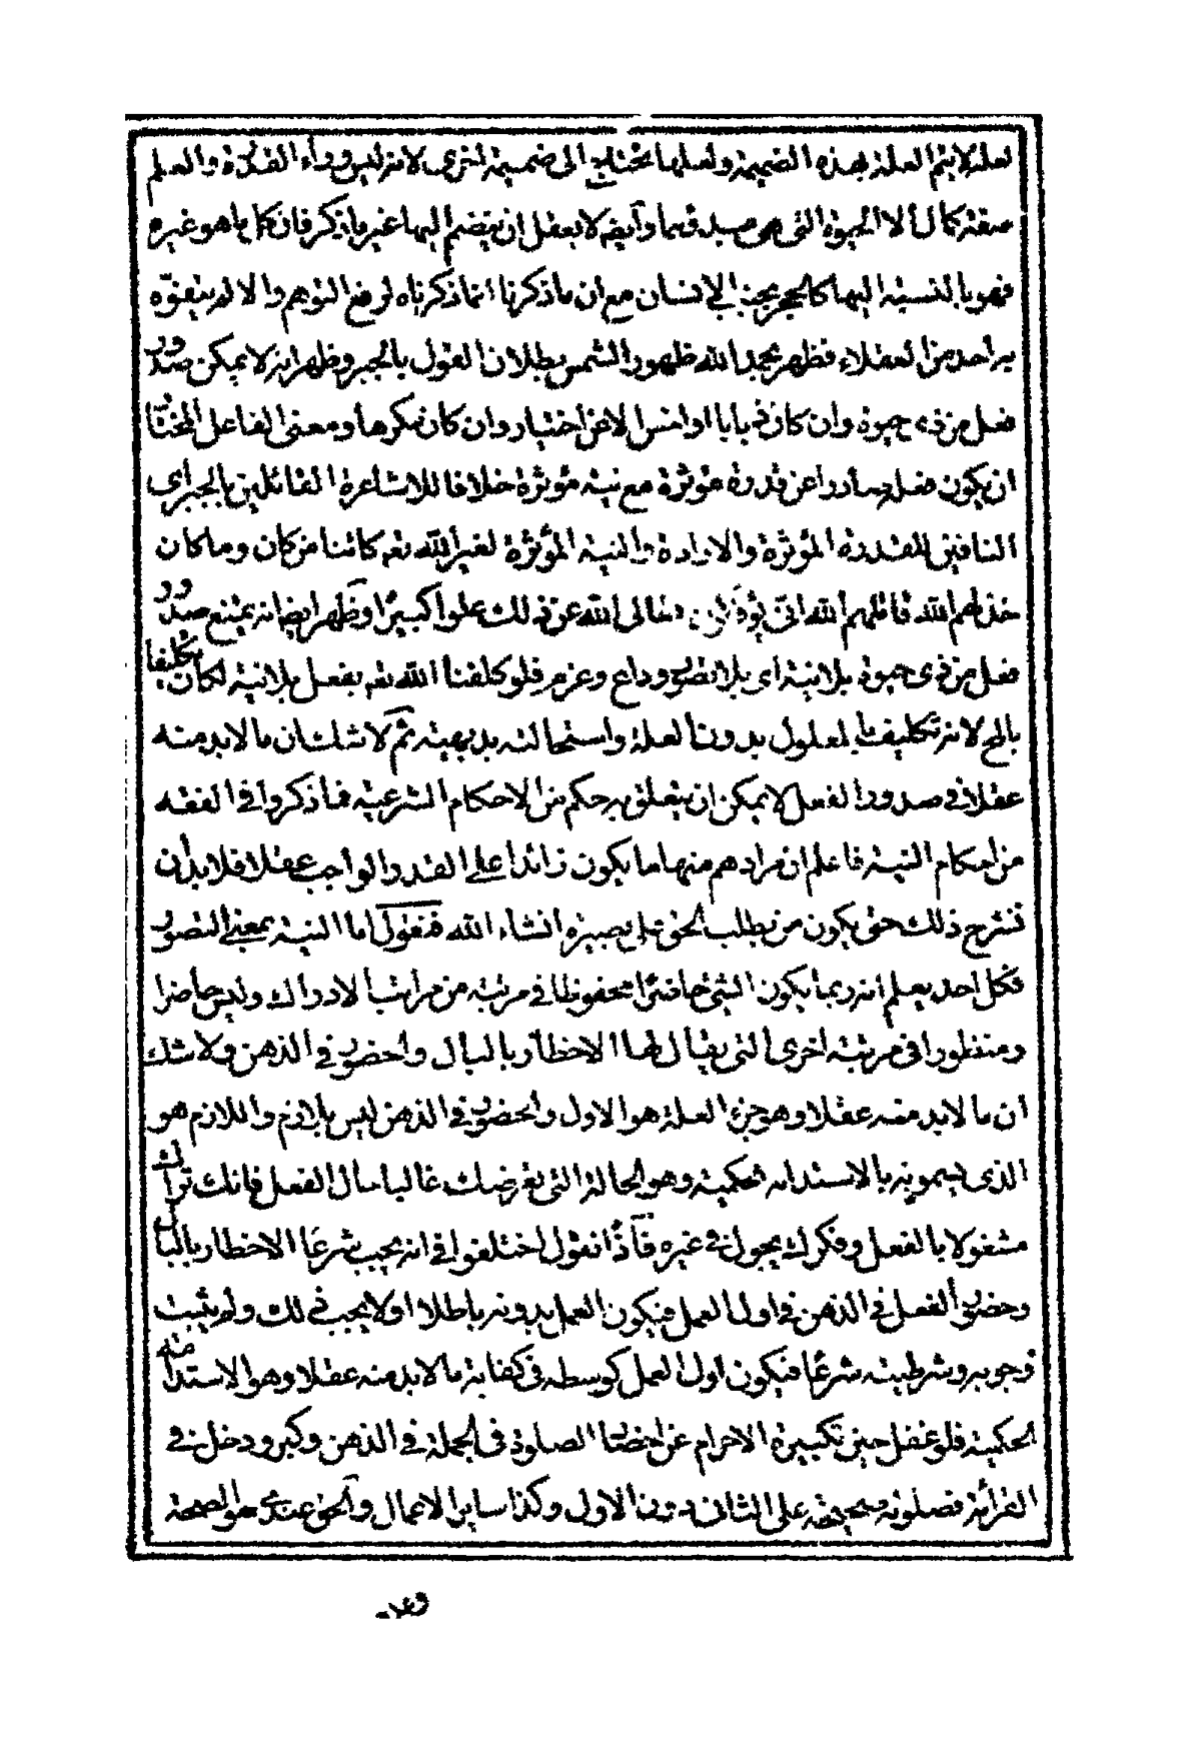 لعله لا يتم العلة بهذه الضميمة ولعلها يحتاج الى ضميمة اخرى لانه ليس وراء القدرة والعلم
صفة كمال الا الحيوة التى هى مبدؤهما وايضا لا يعقل ان ينضم اليها غير ما ذكر فان كلما هو غيره
فهو بالنسبة اليها كالحجر بجنب الانسان مع ان ما ذكرنا انما ذكرناه لرفع التوهم والا لم يتفوّه
به احد من العقلاء فظهر بحمد الله ظهور الشمس بطلان القول بالجبر وظهر انه لا يمكن صدور
فعل من ذى حيوة وان كان ذبابا او انس الا عن اختيار وان كان مكرها ومعنى الفاعل المختار
ان يكون فعله صادرا عن قدرة مؤثرة مع نية مؤثرة خلافا للاشاعرة القائلين بالجبر اى
النافين للقدرة المؤثرة والارادة والنية المؤثرة لغير الله تعه كائنا من كان وما كان
خذلهم الله قاتلهم الله انّى يؤفكون تعالى الله عن ذلك علوا كبيرا وظهر ايضا انه يمتنع صدور
فعل من ذى حيوة بلا نية اى بلا تصور وداع وعزم فلو كلفنا الله تعه بفعل بلا نية لكان تكليفا
بالمح لانه تكليف بالمعلول بدون العلة واستحالته بديهية ثم لا شك ان ما لابد منه
عقلا فى صدور الفعل لا يمكن ان يتعلق به حكم من الاحكام الشرعية فما ذكروا فى الفقه
من احكام النية فاعلم ان مرادهم منها ما يكون زائدا على القدر الواجب عقلا فلابد ان
نشرح ذلك حتى يكون من يطلب الحق على بصيرة انشاء الله فنقول اما النية بمعنى التصور
فكل احد يعلم انه ربما يكون الشئ حاضرا محفوظا فى مرتبة من مراتب الادراك وليس حاضرا
ومنظورا فى مرتبة اخرى التى يقال لها الاخطار بالبال واحضور فى الذهن ولا شك
ان ما لابد منه عقلا وهو جزء العلة هو الاول والحضور فى الذهن ليس بلازم واللازم هو
الذى يسمونه بالاستدامه الحكمية وهو الحالة التى يعرضك غالبا حال الفعل فانك تراك
مشغولا بالفعل وفكرك يجول فى غيره فاذا نقول اختلفوا فى انه يجب شرعا الاخطار بالبال
وحضور الفعل فى الذهن فى اول العمل فيكون العمل بدونه باطلا او لا يجب ذلك ولم يثبت
وجوبه وشرطيته شرعا فيكون اول العمل كوسطه فى كفاية ما لابد منه عقلا وهو الاستدامة
الحكمية فلو غفل حين تكبيرة الاحرام عن احضار الصلوة فى الجملة فى الذهن وكبر ودخل فى
القرائة فصلوته صحيحة على الثانى دون الاول وكذا ساير الاعمال والحق عندى هو الصحة